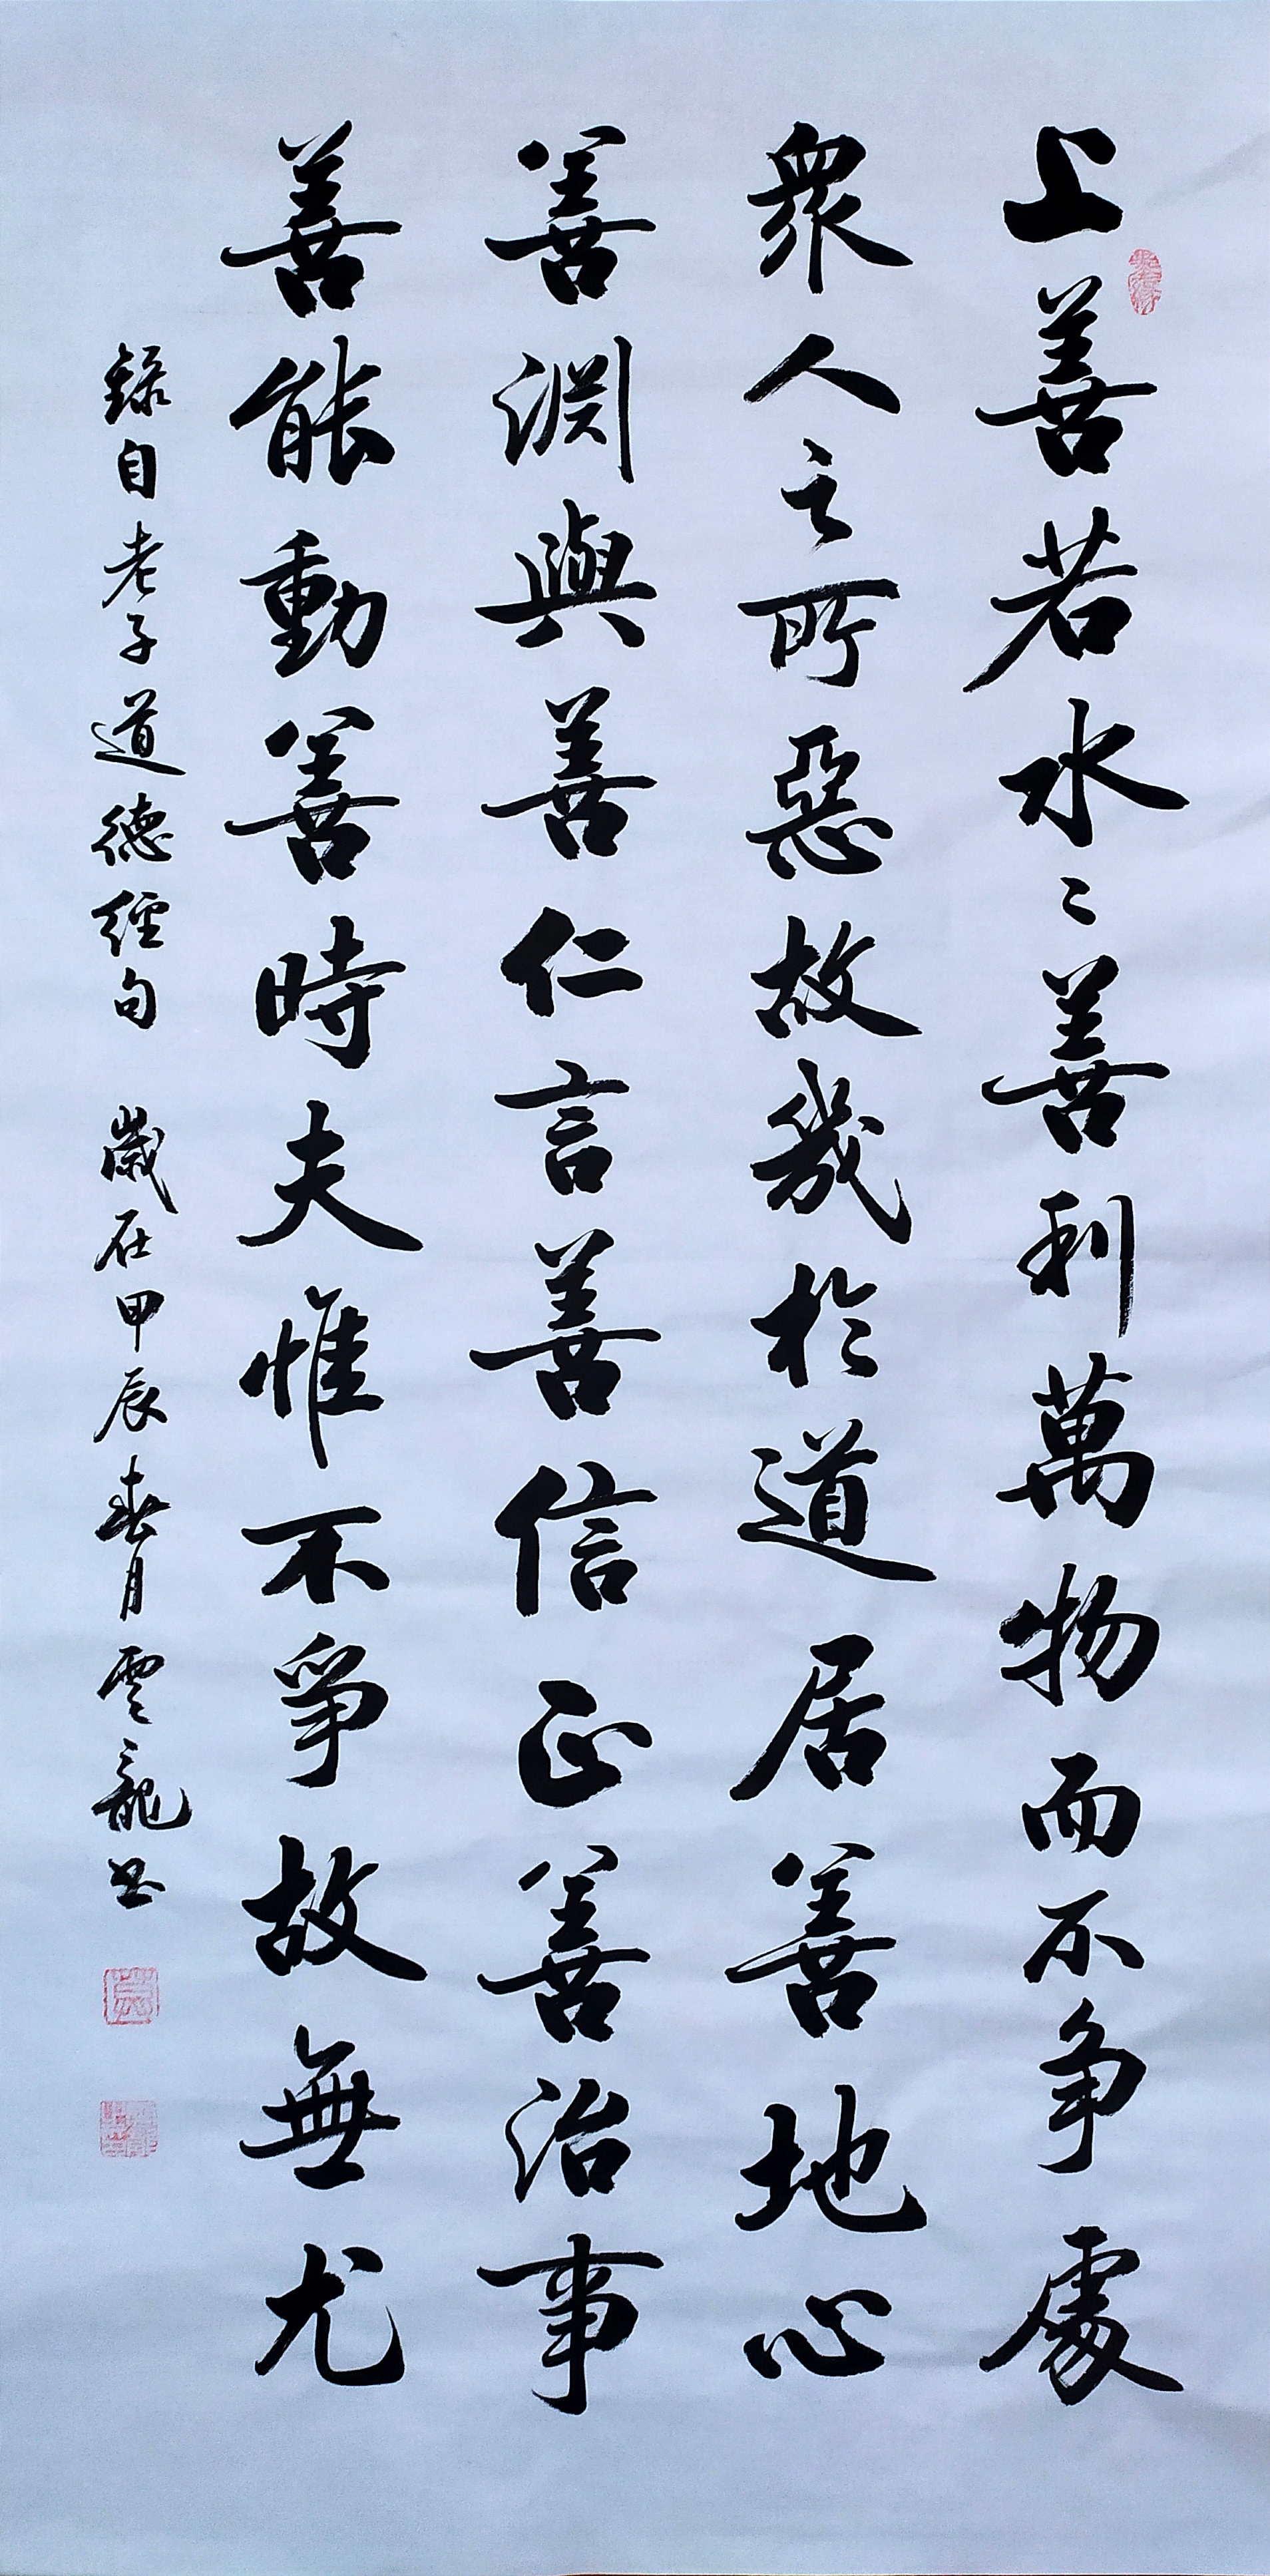 上善若水〻善利萬物而不争處
衆人之所惡故幾於道居善地心
善淵與善仁言善信正善治事
善能動善時夫惟不爭故無尤
録自老子道德經句 歲在甲辰春月雲龍书